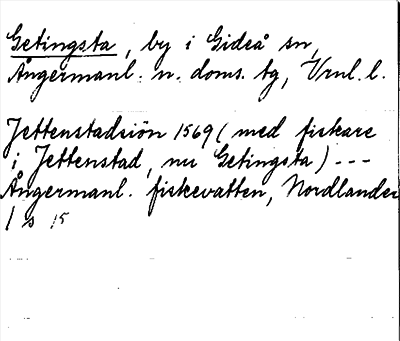 Getingsta, by i Gideå sn,
Ångermanl. n. doms. tg, Vrnl. l.
Jettenstadsiön 1569 (med fiskare
i Jettenstad, nu Getingsta) ---
Ångermanl. fiskevatten, Nordlander
1 s 15